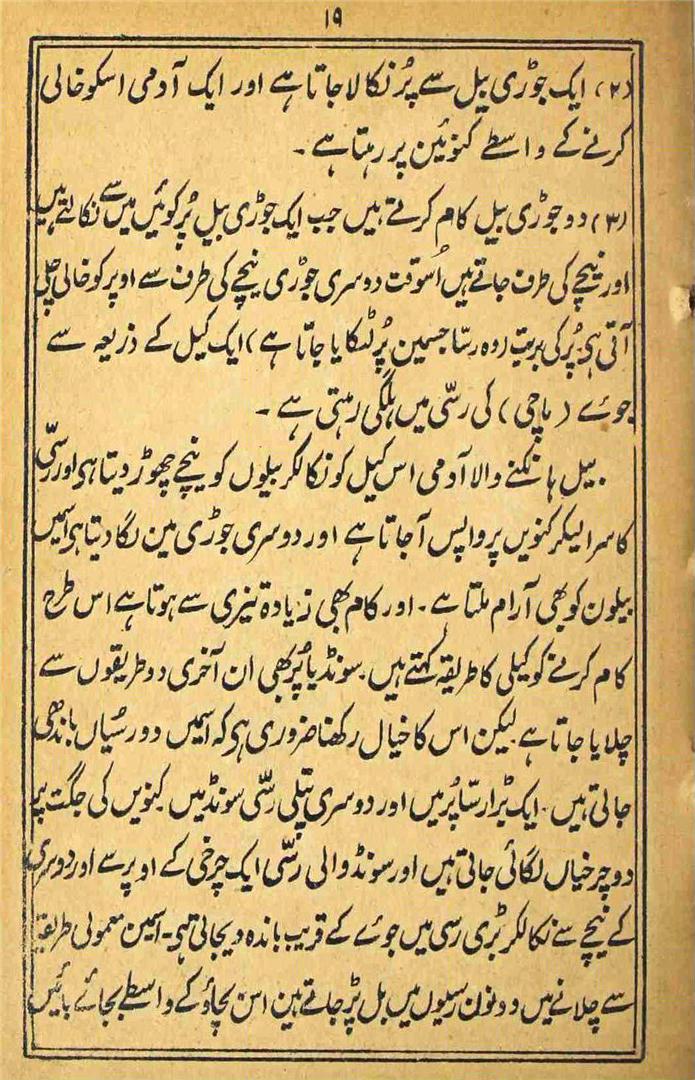 ۱۹
(۲) ایک جوڑی بیل سے پُر نکالا جاتا ہے اور ایک آدمی اسکو خالی
کرنے کے واسطے کنوئین پر رہتا ہے ۔
(۳) دو جوڑی بیل کام کرتے ہیں جب ایک جوڑی بیل پُر کوئیں میں سے نکالتے ہیں
اور نیچے کی طرف جاتے ہیں اُسوقت دوسری جوڑی نیچے کی طرف سے اوپر کو خالی چلی
آتی ہی ۔ پُر کی بریت (وہ رسّا جسمین پُر لٹکایا جاتا ہے) ایک کیل کے ذریعہ سے
جوئے (ماچی) کی رسّی میں ہلگی رہتی ہے ۔
بیل ہانکنے والا آدمی اس کیل کو نکالکر بیلوں کو نیچے چھوڑ دیتا ہی اور رسّی
کا سرا لیکر کنویں پر واپس آجاتا ہے اور دوسری جوڑی مین لگا دیتا ہی اسمیں
بیلون کو بھی آرام ملتا ہے ۔ اور کام بھی زیادہ تیزی سے ہوتا ہے اس طرح
کام کرنے کو کیلی کا طریقہ کہتے ہیں ۔ سونڈیا پُر بھی ان آخری دو طریقوں سے
چلایا جاتا ہے لیکن اس کا خیال رکھنا ضروری ہی کہ اسمیں دو رسّیاں باندھی
جاتی ہیں ۔ ایک بڑا رسّا پُر میں اور دوسری پتلی رسّی سونڈ میں ۔ کنویں کی جگت پر
دو چرخیاں لگائی جاتی ہیں اور سونڈ والی رسّی ایک چرخی کے اوپر سے اور دوسری
کے نیچے سے نکالکر بڑی رسی میں جوئے کے قریب باندہ دیجاتی ہی ۔ اسمین معمولی طریقہ
سے چلانے میں دونون رسیوں میں بل پڑ جاتے ہین اس بچاؤ کے واسطے بجائے بائیں